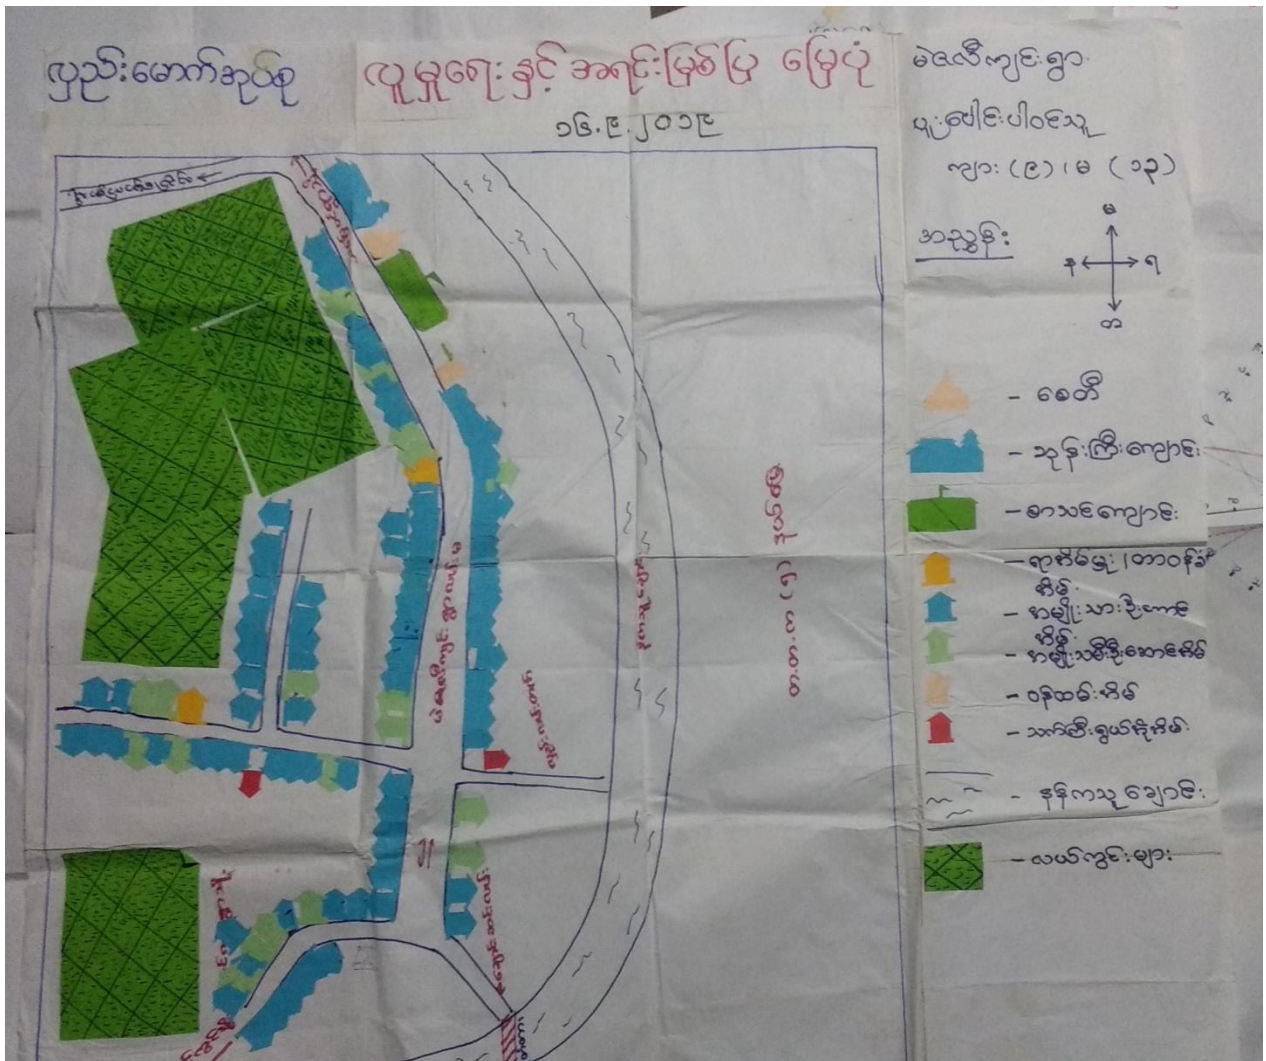 လှည်းမောက်အုပ်စု
လူမှုရေးနှင့် အရင်းမြစ်ပြ မြေပုံ
၁၆.၉.၂၀၁၉
မဲဇလီကျင်းရွာ
ပူးပေါင်းပါဝင်သူ
ကျား (၉) ၊ မ (၁၃)
အညွှန်း
မ
န ရ
တ
- စေတီ
- ဘုန်းကြီးကျောင်း
- စာသင်ကျောင်း
- ရာအိမ်မှူး /တာဝန်ခံ
အိမ်
- အမျိုးသားဦးဆောင်
အိမ်
- အမျိုးသမီးဦးဆောင်အိမ်
- ဝန်ထမ်းအိမ်
- သက်ကြီးရွယ်အိုအိမ်
- နန်ကသူချောင်း
- လယ်ကွင်းများ
မဲဇလီကျင်း ရွာလမ်းမ
နန်ကသူချောင်း
တ.တ.တ (၅) နယ်မြေ